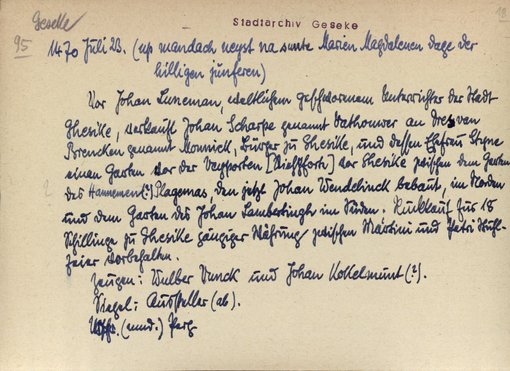 Geseke
Stadtarchiv Geseke
18
95
1470 Juli 23. (up mandach neyst na sunte Marien Magdalenen dage der
hilligen junferen)
Vor Johan Luneman, weltlichem geschworenem Unterrichter der Stadt
Ghesike, verkauft Johan Scharpe genannt Vathouwer an Dres van
Brencken genannt Monnick, Bürger zu Ghesike, und dessen Ehefrau Styne
einen Garten vor der Veyporten [Viehpforte] vor Ghesike zwischen dem Garten
des Hannement (?) Plagemas den jetzt Johan Wendelinck bebaut, im Norden
und dem Garten des Johan Lamberdingh im Süden. Rückkauf für 18
Schillinge zu Ghesike gängiger Währung zwischen Martini und Petri Stuhl-
feier vorbehalten.
Zeugen: Wulber Vunck und Johan Kokkelmunt (?).
Siegel: Aussteller (ab).
(mnd.) Perg